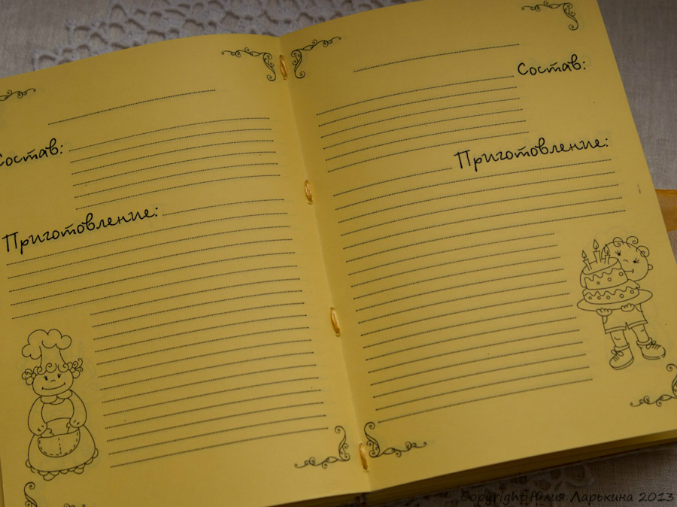 Состав:
Приготовление:
Состав:
Приготовление:
Copyright Юлия Ларькина 2013